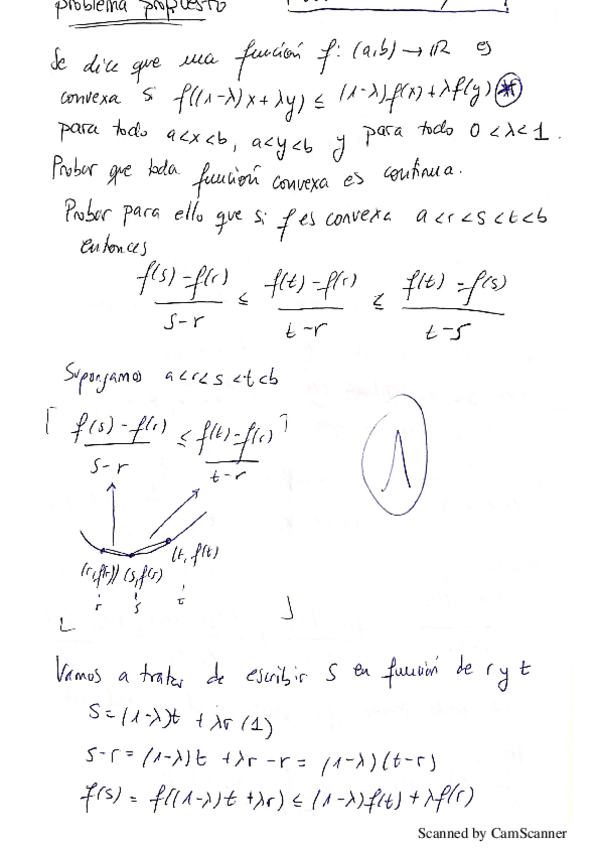 problema propuesto
Se dice que una función f: (a,b) → ℝ es
convexa si f((1-λ)x+λy) ≤ (1-λ)f(x)+λf(y) (*)
para todo a<x<b, a<y<b y para todo 0<λ<1.
Probar que toda función convexa es continua.
Probar para ello que si f es convexa a<r<s<t<b
entonces
(f(s)-f(r))/(s-r) ≤ (f(t)-f(r))/(t-r) ≤ (f(t)-f(s))/(t-s)
Supongamos a<r<s<t<b
⌈ (f(s)-f(r))/(s-r) ≤ (f(t)-f(r))/(t-r) ⌉
1
(t, f(t))
(r, f(r)) (s, f(s))
r s t
Vamos a tratar de escribir s en función de r y t
S=(1-λ)t + λr (1)
s-r = (1-λ)t + λr - r = (1-λ)(t-r)
f(s) = f((1-λ)t + λr) ≤ (1-λ)f(t) + λf(r)
Scanned by CamScanner